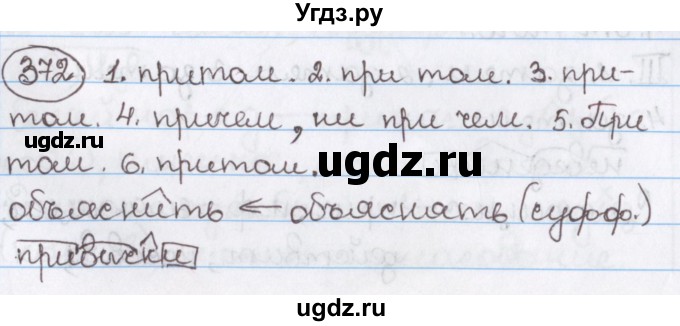 Угдз.ру
372 1. притом. 2. при том. 3. при-
том. 4. причем, ни при чем. 5. При
том. 6. притом.
объяснить ← объяснять (суфф.)
привычки
ugdz.ru
ugdz.ru
ugdz.ru
ugdz.ru
Угдз.ру